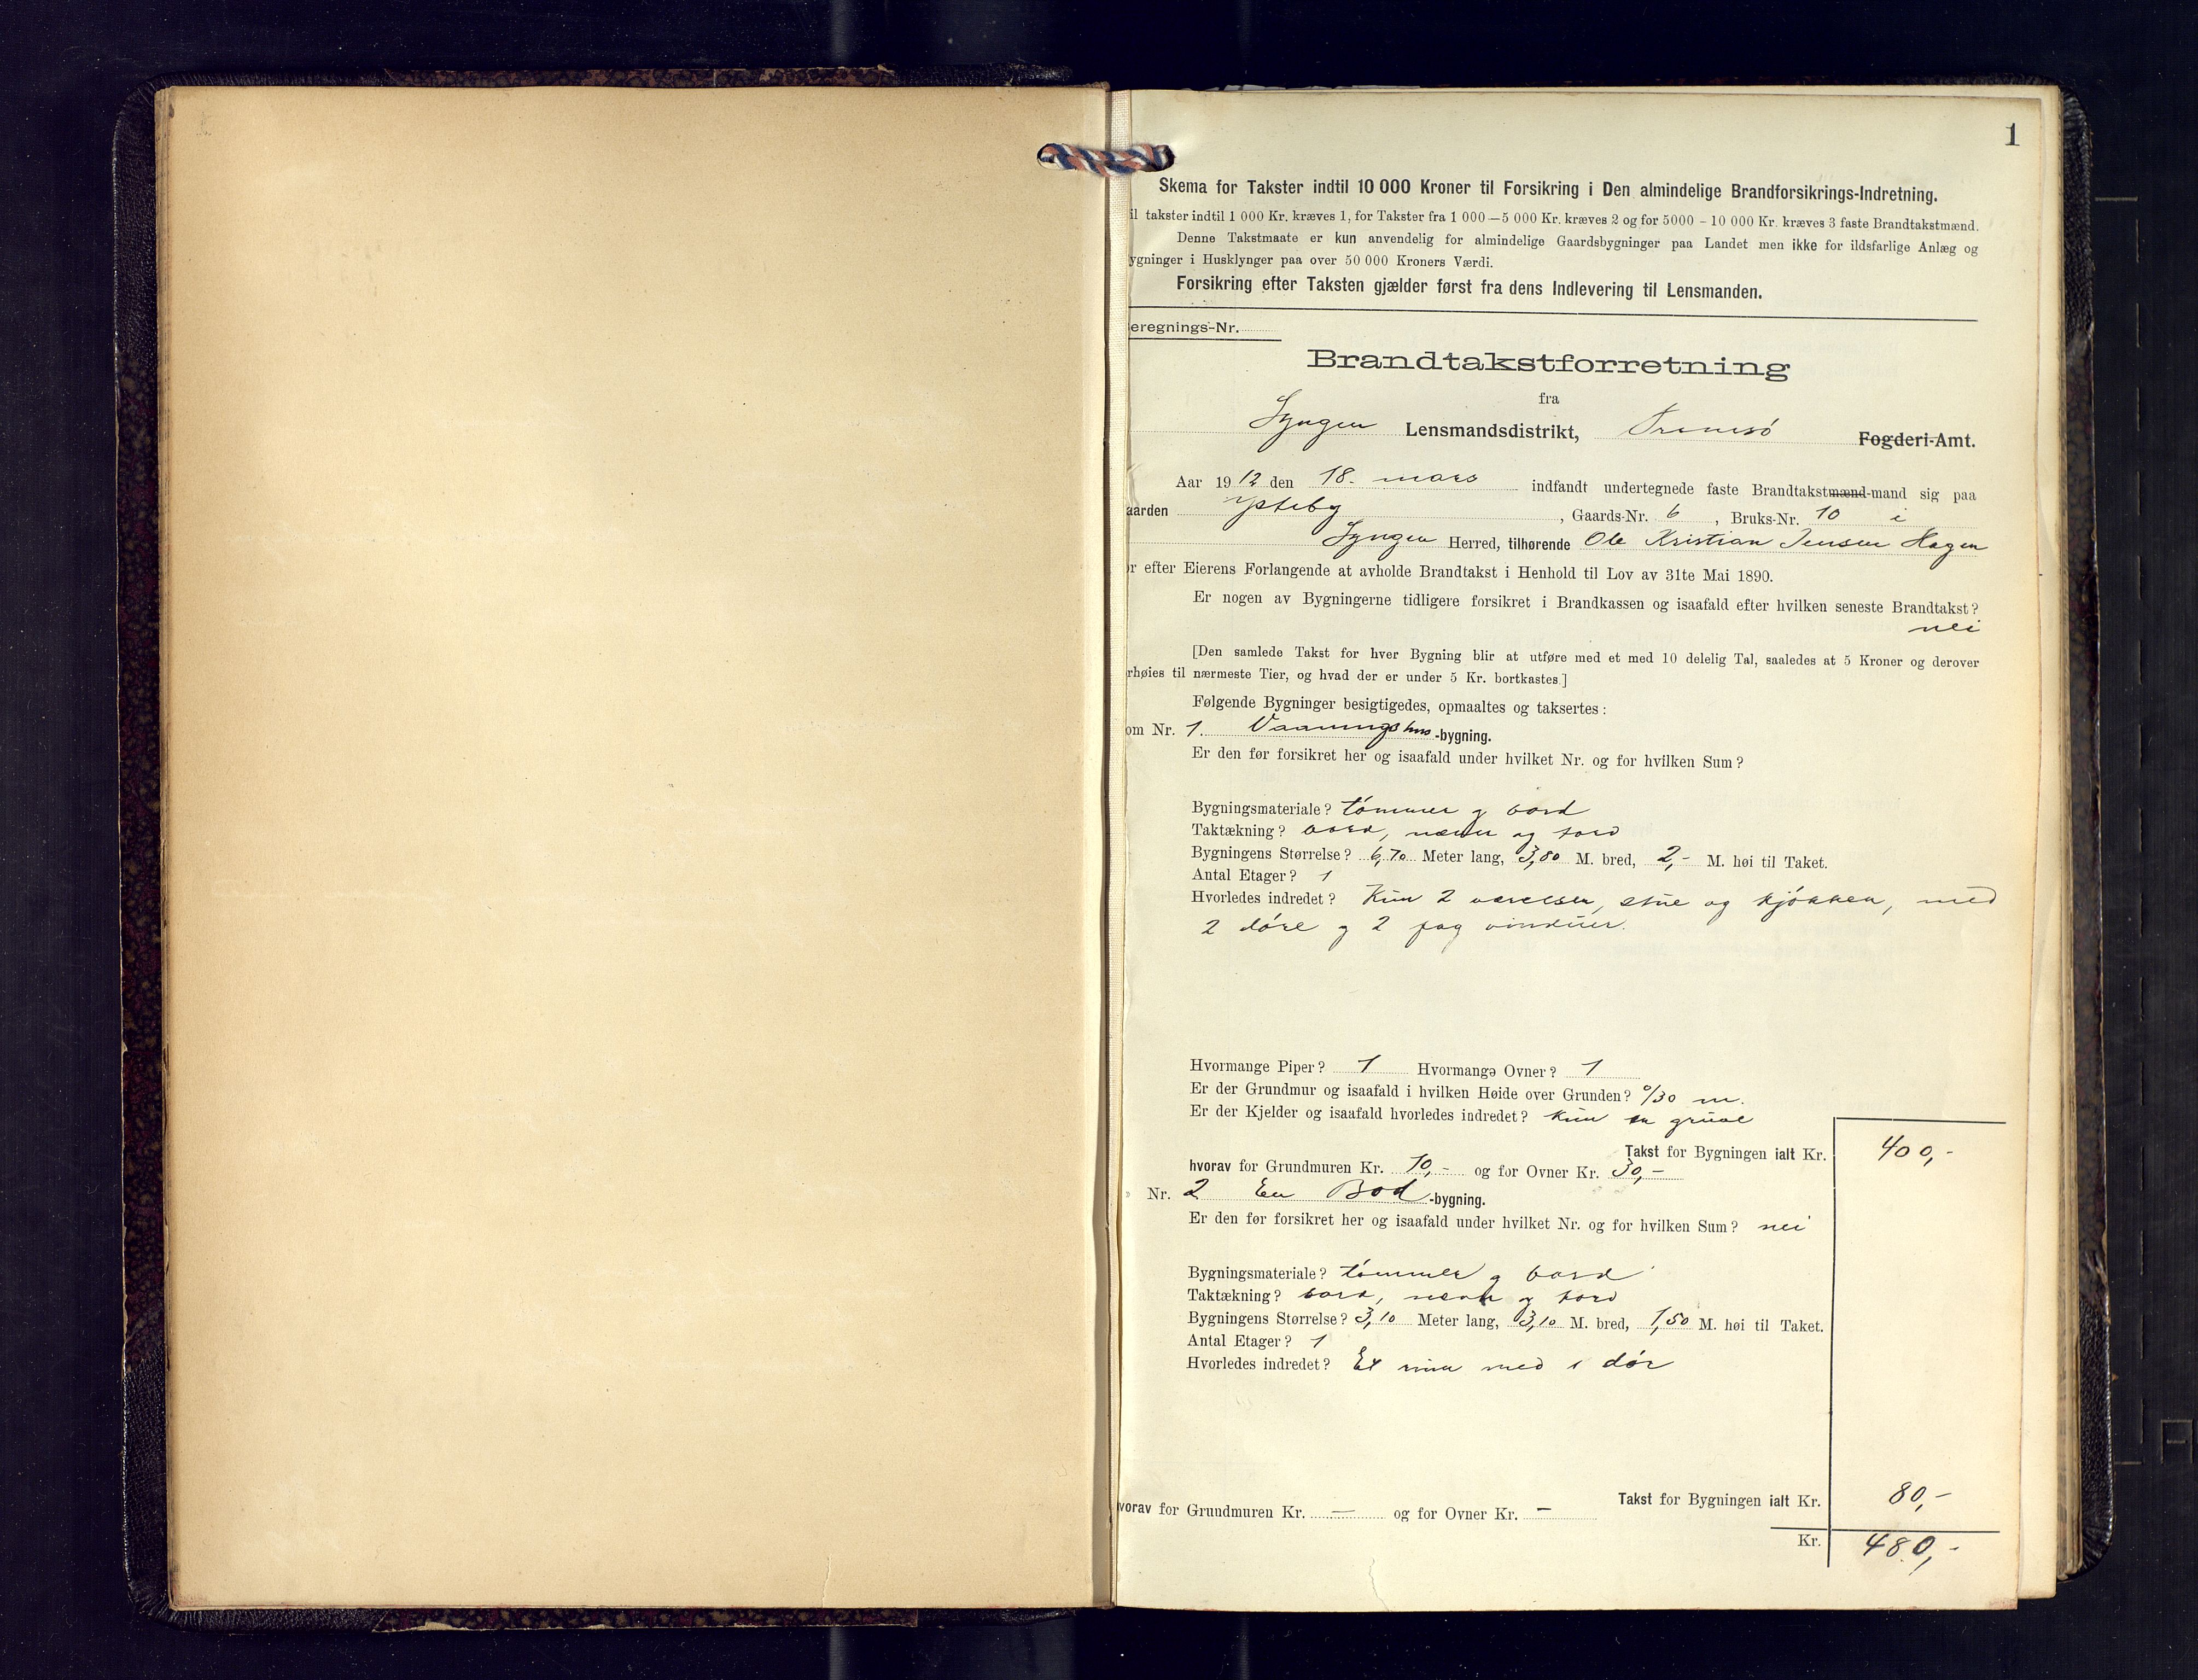 1
Skema for Takster indtil 10 000 Kroner til Forsikring i Den almindelige Brandforsikrings-Indretning.
il takster indtil 1 000 Kr. kræves 1, for Takster fra 1 000 — 5 000 Kr. kræves 2 og for 5000 - 10 000 Kr. kræves 3 faste Brandtakstmænd.
Denne Takstmaate er kun anvendelig for almindelige Gaardsbygninger paa Landet men ikke for ildsfarlige Anlæg og
ygninger i Husklynger paa over 50 000 Kroners Værdi.
Forsikring efter Taksten gjælder først fra dens Indlevering til Lensmanden.
eregnings-Nr.
Brandtakstforretning
fra
Lyngen Lensmandsdistrikt, Tromsö Fogderi-Amt.
Aar 1912 den 18. mars indfandt undertegnede faste Brandtakstmænd-mand sig paa
aarden Ysteby, Gaards-Nr. 6, Bruks-Nr. 10 i
Lyngen Herred, tilhørende Ole Kristian Jensen Hagen
r efter Eierens Forlangende at avholde Brandtakst i Henhold til Lov av 31te Mai 1890.
Er nogen av Bygningerne tidligere forsikret i Brandkassen og isaafald efter hvilken seneste Brandtakst?
nei
[Den samlede Takst for hver Bygning blir at utføre med et med 10 delelig Tal, saaledes at 5 Kroner og derover
rhøies til nærmeste Tier, og hvad der er under 5 Kr. bortkastes.]
Følgende Bygninger besigtigedes, opmaaltes og taksertes:
om Nr. 1. Vaaningshus-bygning.
Er den før forsikret her og isaafald under hvilket Nr. og for hvilken Sum?
Bygningsmateriale? tömmer og bord
Taktækning? bord, næver og torv
Bygningens Størrelse? 6,70 Meter lang, 3,80 M. bred, 2,- M. høi til Taket.
Antal Etager? 1
Hvorledes indredet? Kun 2 værelser, stue og kjökken, med
2 döre og 2 fag vinduer.
Hvormange Piper? 1 Hvormange Ovner? 1
Er der Grundmur og isaafald i hvilken Høide over Grunden? 0/30 m.
Er der Kjelder og isaafald hvorledes indredet? kun en gruve
Takst for Bygningen ialt Kr. 400,-
hvorav for Grundmuren Kr. 10,- og for Ovner Kr. 30,-
» Nr. 2 En Bod-bygning.
Er den før forsikret her og isaafald under hvilket Nr. og for hvilken Sum? nei
Bygningsmateriale? tömmer og bord
Taktækning? bord, næver og torv
Bygningens Størrelse? 3,10 Meter lang, 3,10 M. bred, 1,50 M. høi til Taket.
Antal Etager? 1
Hvorledes indredet? Et rum med 1 dör
Takst for Bygningen ialt Kr. 80,-
vorav for Grundmuren Kr. — og for Ovner Kr. —
Kr. 480,-